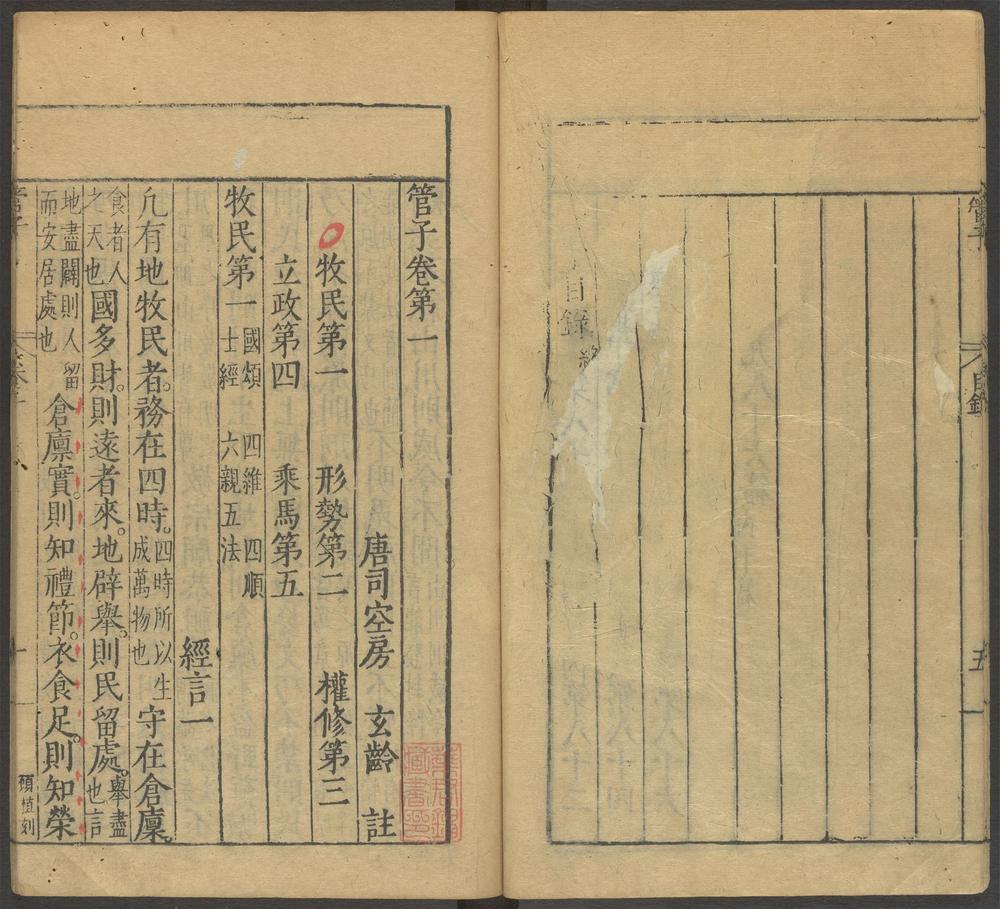 管子
目錄
五
目錄終
管子卷第一
唐司空房 玄齡 註
牧民第一 形勢第二 權修第三
立政第四 乘馬第五
牧民第一 國頌 四維 四順 士經 六親五法
經言一
凢有地牧民者。務在四時。四時所以生成萬物也守在倉廩。
食者人之天也國多財。則遠者來。地辟舉。則民留處。舉盡也言
地盡闢則人留而安居處也倉廩實。則知禮節。衣食足。則知榮
管子
顧植刻